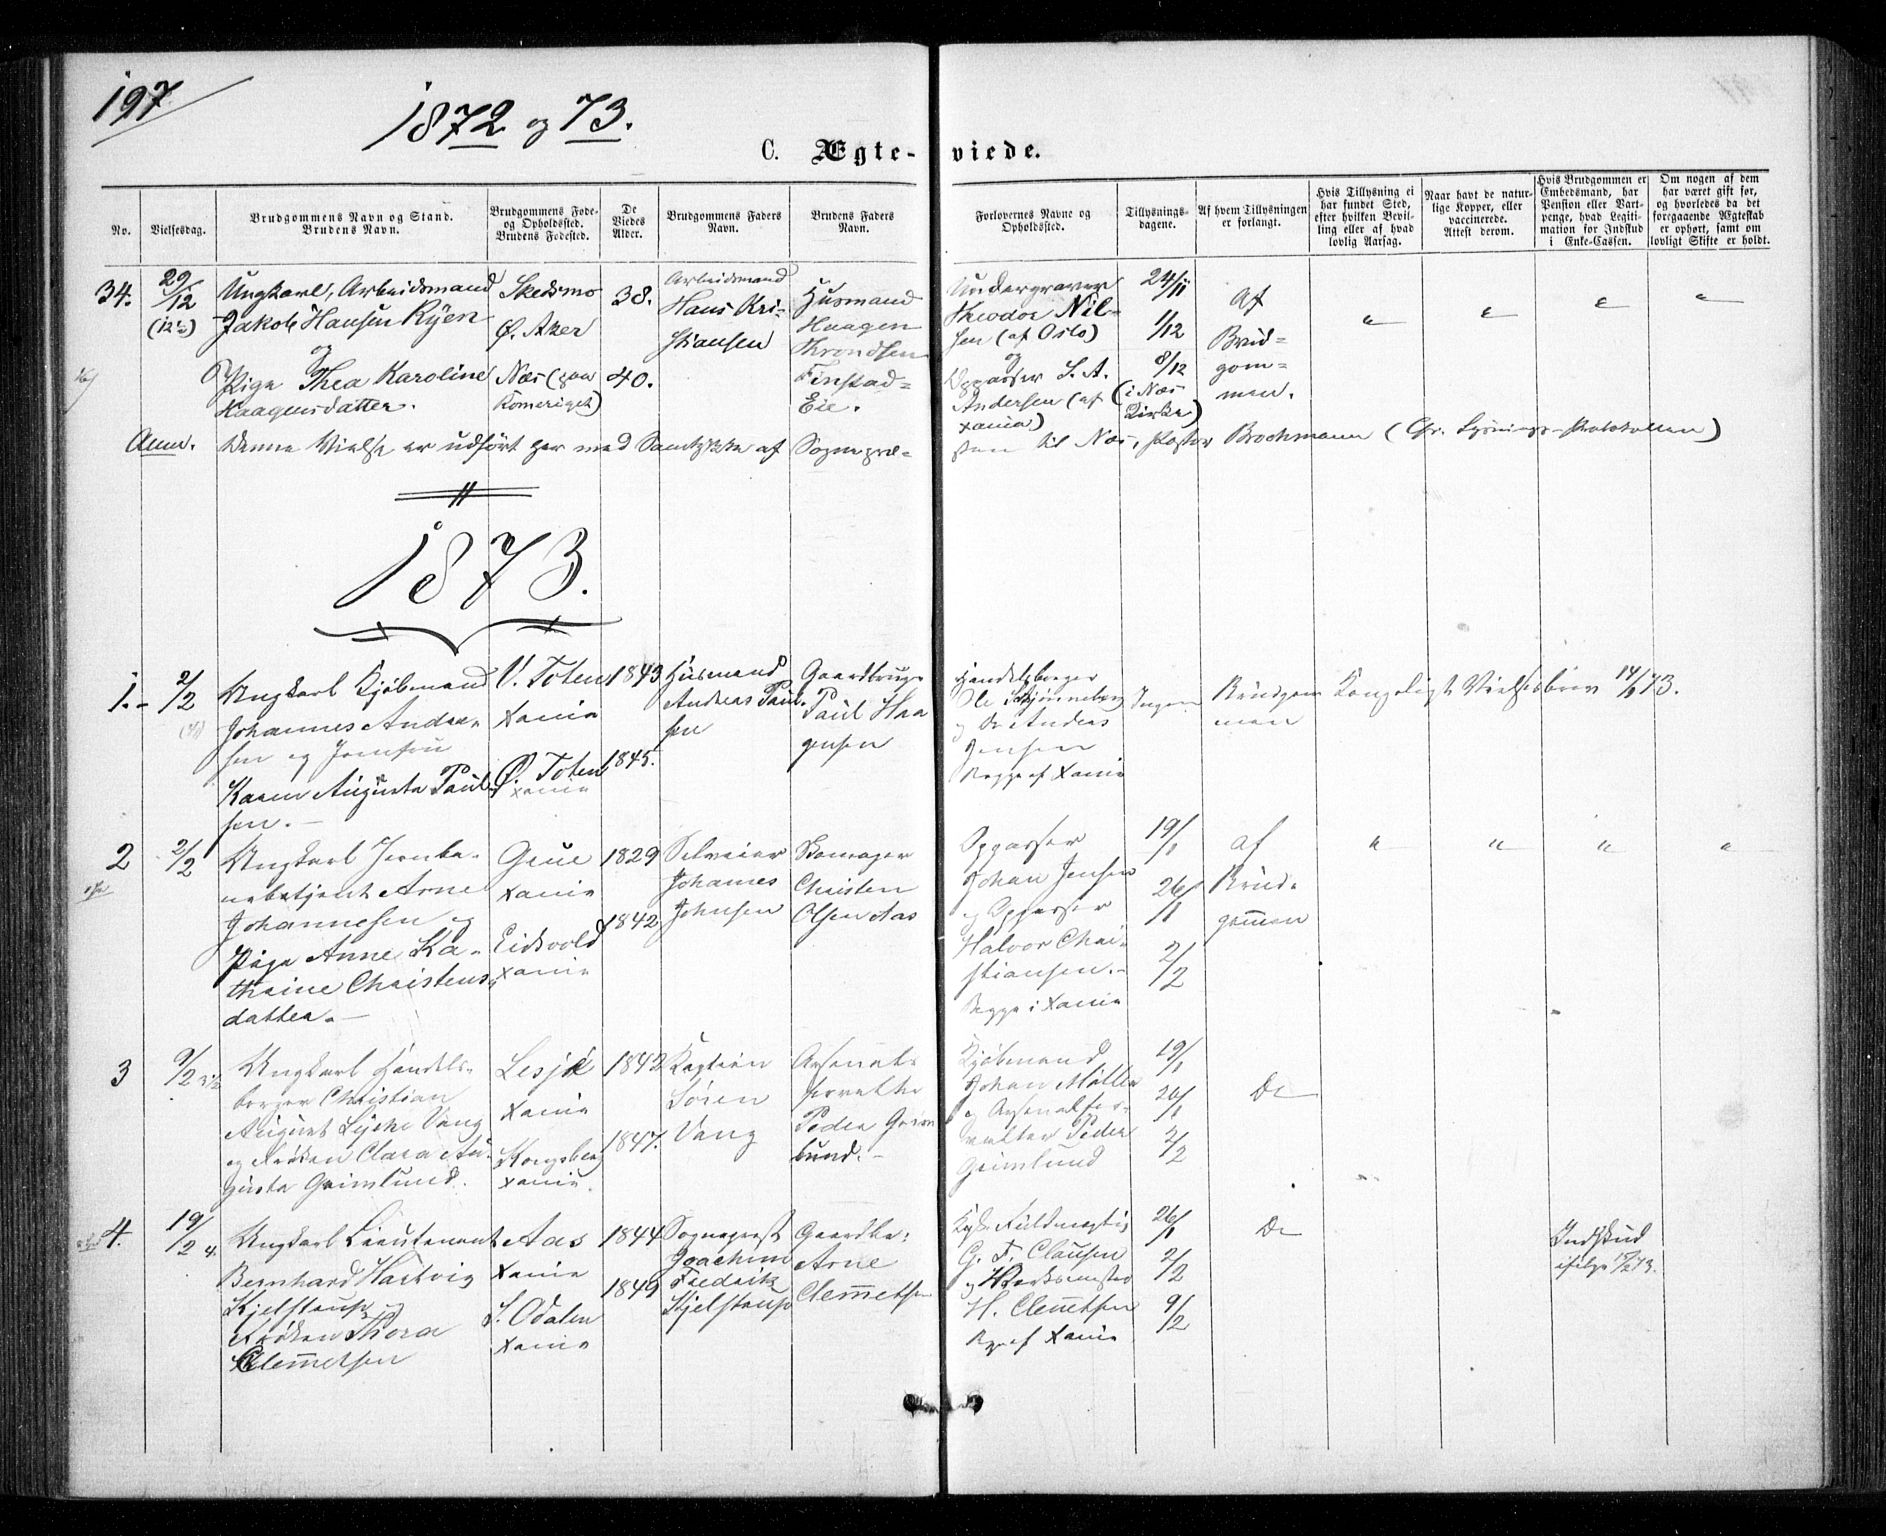 197
1872 og 73.
C. Ægte-viede.
No.
Vielsesdag.
Brudgommens Navn og Stand.
Brudens Navn.
Brudgommens Føde-
og Opholdssted.
Brudens Fødested.
De
Viedes
Alder.
Brudgommens Faders
Navn.
Brudens Faders
Navn.
Forlovernes Navne og
Opholdssted.
Tillysnings-
dagene.
Af hvem Tillysningen
er forlangt.
Hvis Tillysning ei
har fundet Sted,
efter hvilken Bevil-
ling eller af hvad
lovlig Aarsag.
Naar havt de natur-
lige Kopper, eller
vaccinerede.
Attest derom.
Hvis Brudgommen er
Embedsmand, har
Pension eller Vart-
penge, hvad Legiti-
mation for Indskud
i Enke-Cassen.
Om nogen af dem
har været gift før,
og hvorledes da det
foregaaende Ægteskab
er ophørt, samt om
lovligt Skifte er holdt.
34.
29/12
Ungkarl, Arbeidsmand
Jakob Hansen Ryen
og
Pige Thea Karoline
Haagensdatter.
Skedsmo
Ø. Aker
Næs (paa
Romeriget)
38.
40.
Arbeidsmand
Hans Kri-
stiansen
Husmand
Haagen
Throndsen
Finstad-
Eie.
Undergraver
Theodor Nil-
sen (af Oslo)
og
Oppasser S. A.
Andersen (af
Xania)
24/11
1/12
8/12
(i Næs
Kirke)
Af
Brud-
gom-
men.
" " " "
Anm. Denne Vielse er udført her med Samtykke af Sognepræ-
sten til Næs, Pastor Brochmann (Cfr. Lysnings-Protokollen)
1873.
1.-
2/2
Ungkarl Kjøbmand
Johannes Andrea-
sen og Jomfru
Karen Augusta Paul-
sen.-
V. Toten
Xania
Ø. Toten
Xania
1843
1845.
Husmand
Andreas Paul-
sen
Gaardbruger
Paul Haa
gensen
Handelsborger
Ole
og Do Andreas
Jensen
Begge af Xania
Ingen
Brudgom
men
Kongeligt Vielsesbrev 14/1 73.
2
2/2
Ungkarl Jernba-
nebetjent Arne
Johannesen og
Pige Anne Ka-
thrine Christens-
datter.-
Grue
Xania
Eidsvold
Xania
1829
1842
Selveier
Johannes
Johnsen
Skomager
Christen
Olsen Aas
Oppasser
Johan Jensen
og Oppasser
Halvor Chri-
stiansen.-
Begge i Xania
19/1
26/1
2/2
af
Brud-
gommen
" " " "
3
9/2
Ungkarl Handels-
borger Christian
August Lyche Vang
og Frøken Clara Au-
gusta Grimlund.
Lesje
Xania
Kongsberg
Xania.
1842
1847.
Kaptein
Søren
Vang
Arsenal-
forvalter
Peder Grim
lund.-
Kjøbmand
Johan Møller
og Arsenalfor-
valter Peder
Grimlund
19/1
26/1
2/2
Do
4.
19/2
Ungkarl Lieutenant
Bernhard Hartvig
Kjelstrup og
Frøken Thora
Clemetsen
Aas
Xania
S. Odalen
Xania
1844
1849
Sogneprest
Joachim
Fredrik
Kjelstrup
Gaardbr.
Arne
Clemetsen
Kgl. Fuldmægtig
G. F. Clausen
og Værksmester
H. Clemetsen
Bge af Xania
26/1
2/2
9/2
Do
Indskud
ifølge 15/2 73.